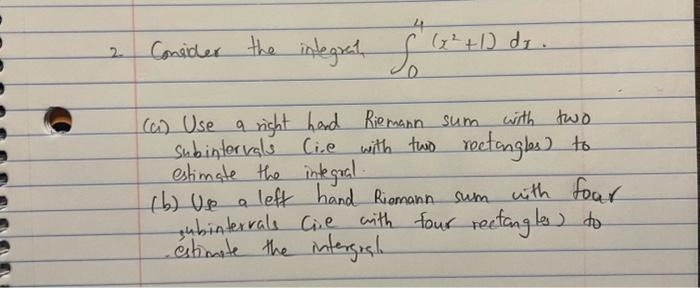 2 Consider the integral ∫₀⁴ (x²+1) dx.
(a) Use a right hand Riemann sum with two
subintervals (i.e with two rectangles) to
estimate the integral.
(b) Use a left hand Riemann sum with four
subintervals (i.e with four rectangles) to
estimate the intergral.